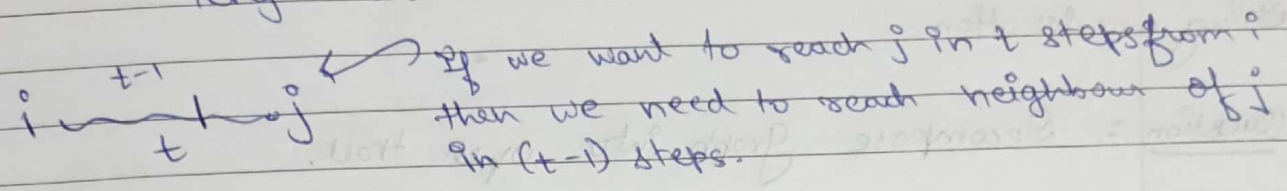 If we want to reach j in t steps from i
t-1
i j then we need to reach neighbour of j
t in (t-1) steps.